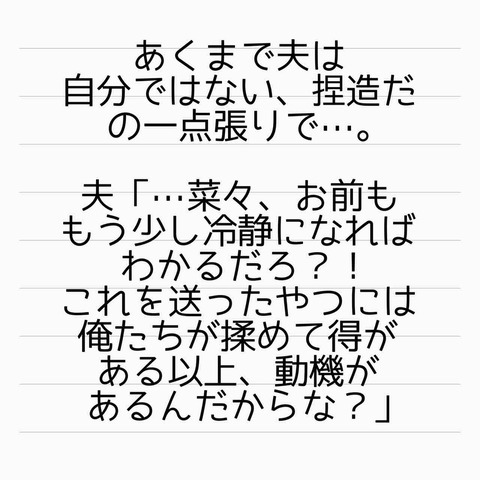 あくまで夫は
自分ではない、捏造だ
の一点張りで…。
夫「…菜々、お前も
もう少し冷静になれば
わかるだろ？！
これを送ったやつには
俺たちが揉めて得が
ある以上、動機が
あるんだからな？」